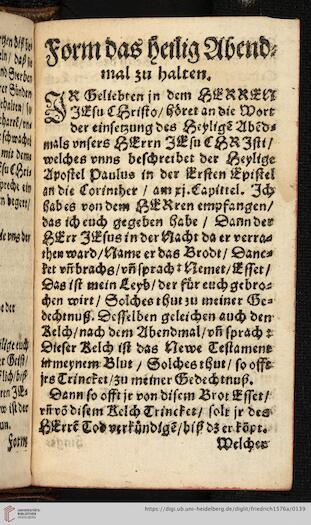 Form das heilig Abend-
mal zu halten.
IR Geliebten jn dem HERREN
JEsu CHristo / höret an die Wort
der einsetzung des Heyligē Abēd-
mals vnsers HErrn JEsu CHRJsti /
welches vnns beschreibet der Heylige
Apostel Paulus in der Ersten Epistel
an die Corinther / am xj. Capittel. Jch
habes von dem HERren empfangen /
das ich euch gegeben habe / Dañ der
HErr JEsus in der Nacht da er verra-
then ward / Name er das Brodt / Danc-
ket vñ brachs / vñ sprach : Nemet / Esset /
Das ist mein Leyb / der für euch gebro-
chen wirt / Solches thut zu meiner Ge-
dechtnuß. Desselben geleichen auch den
Kelch / nach dem Abendmal / vñ sprach :
Dieser Kelch ist das Newe Testament
in meynem Blut / Solches thut / so offt
jrs Trincket / zu meiner Gedechtnuß.
Dann so offt jr von disem Brot Esset /
vñ vō disem Kelch Trincket / solt jr des
HErrē Tod verkündigē / biß dz er kōpt.
Welcher
Form
https://digi.ub.uni-heidelberg.de/diglit/friedrich1576a/0139
UNIVERSITÄTS-
BIBLIOTHEK
HEIDELBERG